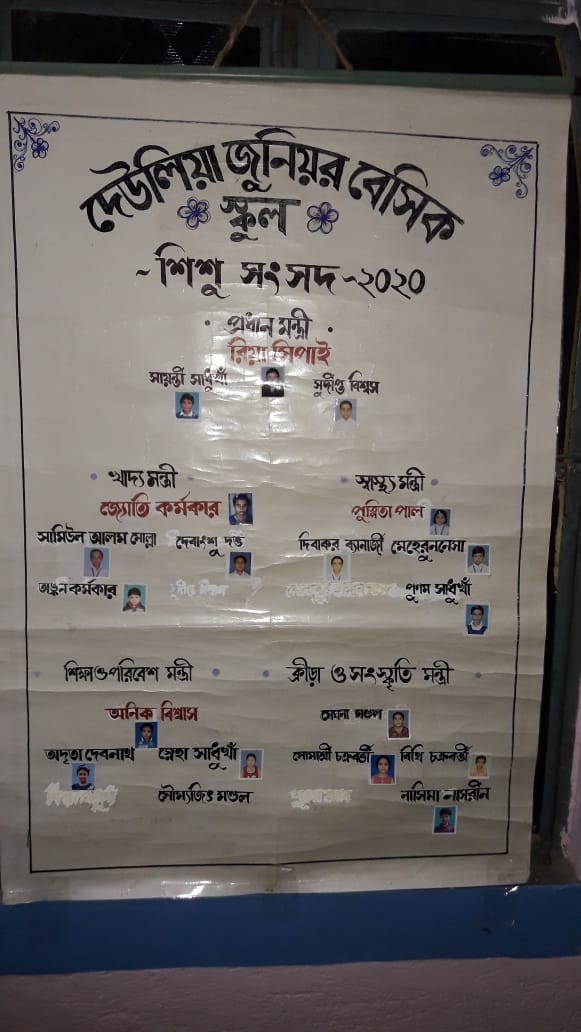 দেউলিয়া জুনিয়র বেসিক
স্কুল
~শিশু সংসদ~২০২০
• প্রধান মন্ত্রী •
রিয়া সিপাই
সায়ন্তী সাধুখাঁ সুদীপ্ত বিশ্বাস
• খাদ্য মন্ত্রী •
জ্যোতি কর্মকার
সামিউল আলম মোল্লা দেবাংশু দত্ত
কর্মকার
• স্বাস্থ্য মন্ত্রী •
পাল
দিবাকর ব্যানার্জী মেহেরুননেসা
পুণম সাধুখাঁ
শিক্ষা ও পরিবেশ মন্ত্রী •
অনিক বিশ্বাস
অদৃতা দেবনাথ স্নেহা সাধুখাঁ
সৌম্যজিৎ মণ্ডল
• ক্রীড়া ও সংস্কৃতি মন্ত্রী •
মেঘনা মণ্ডল
চক্রবর্তী তিথি চক্রবর্তী
নাসিমা নাসরীন